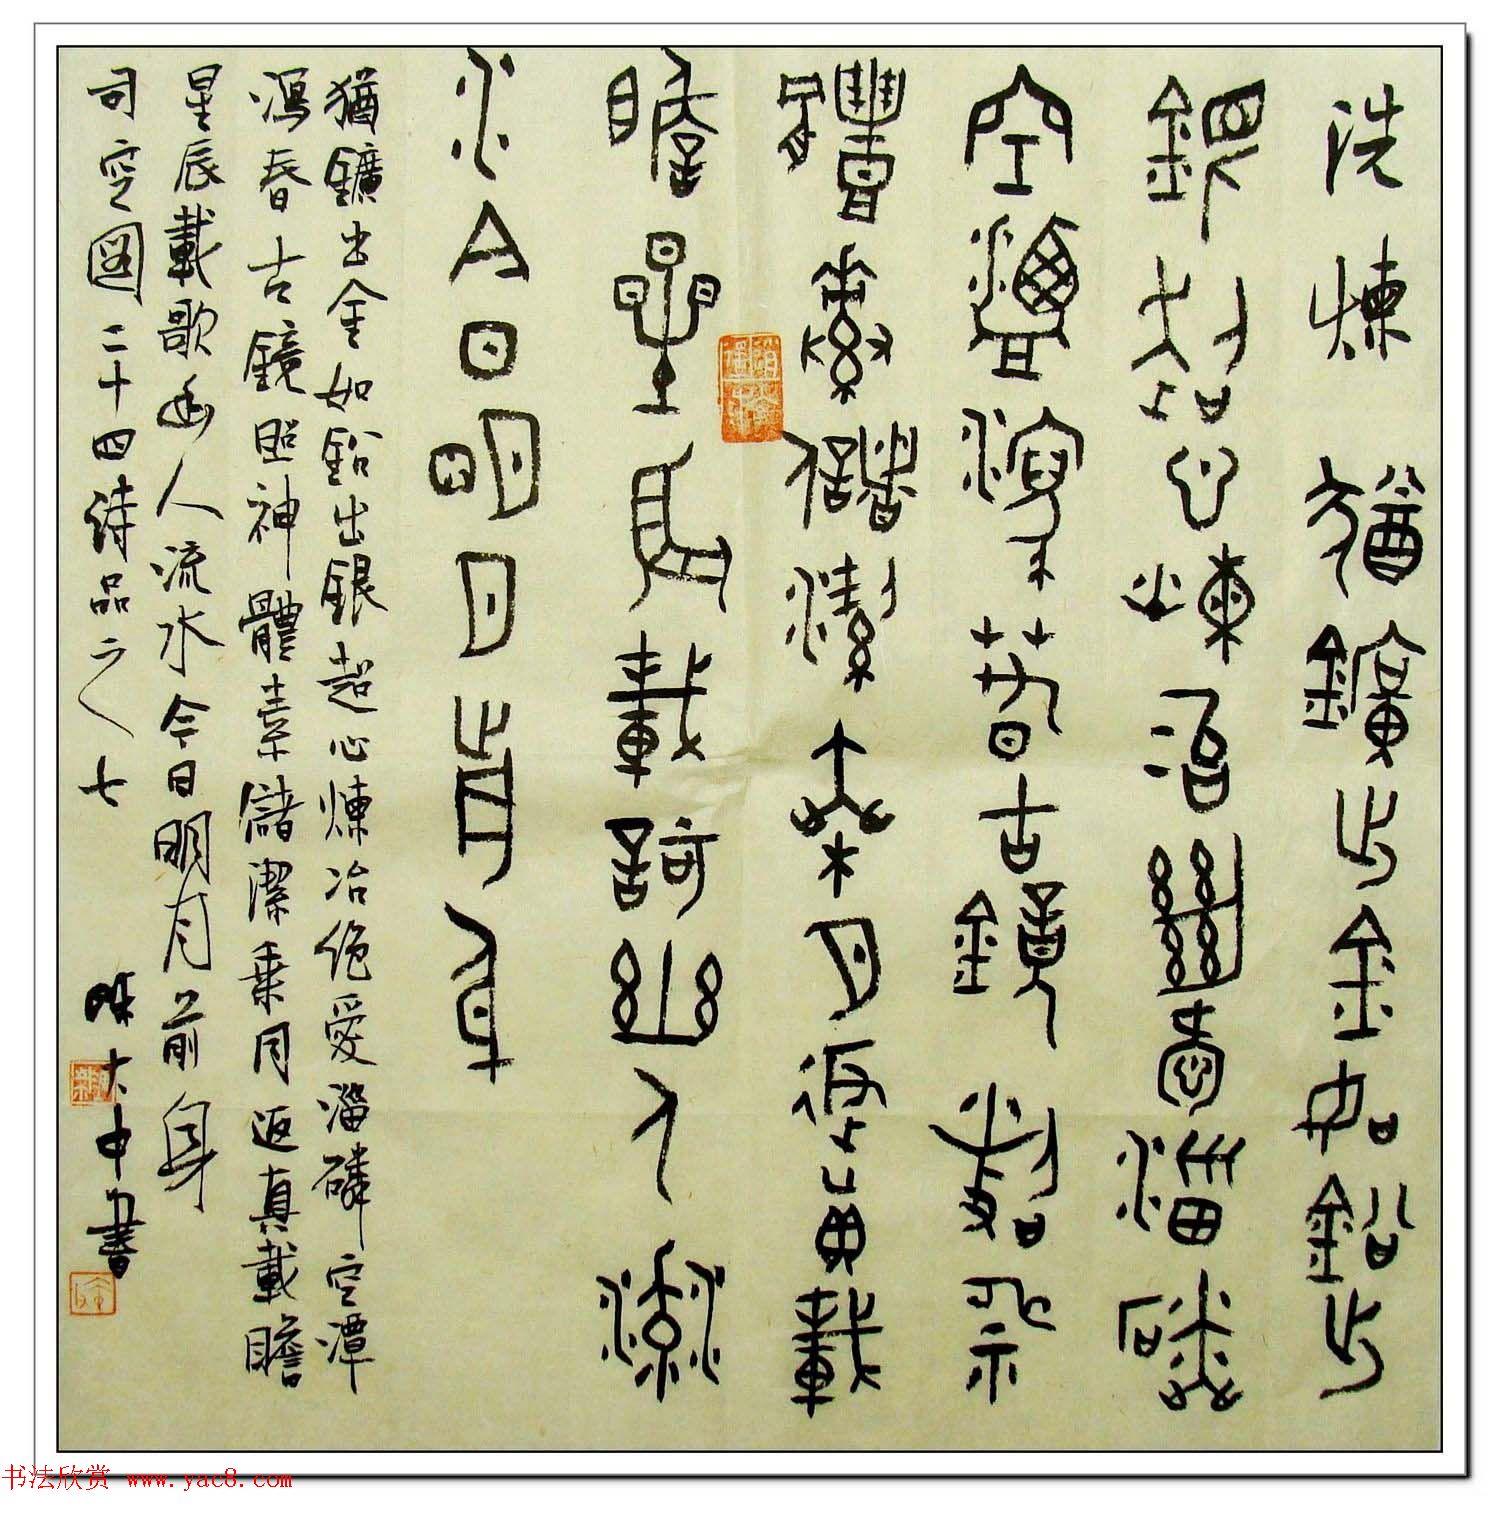 洗煉 猶鑛出金如鉛出
銀超心煉冶絕愛淄磷
空潭瀉春古鏡照神
體素儲潔乘月返真載
瞻星辰載歌幽人流
水今日明月前身
猶鑛出金如鉛出銀超心煉冶絕愛淄磷空潭
瀉春古鏡照神體素儲潔乘月返真載瞻
星辰載歌幽人流水今日明月前身
司空圖二十四詩品之七 陳大中書
书法欣赏 www.yac8.com